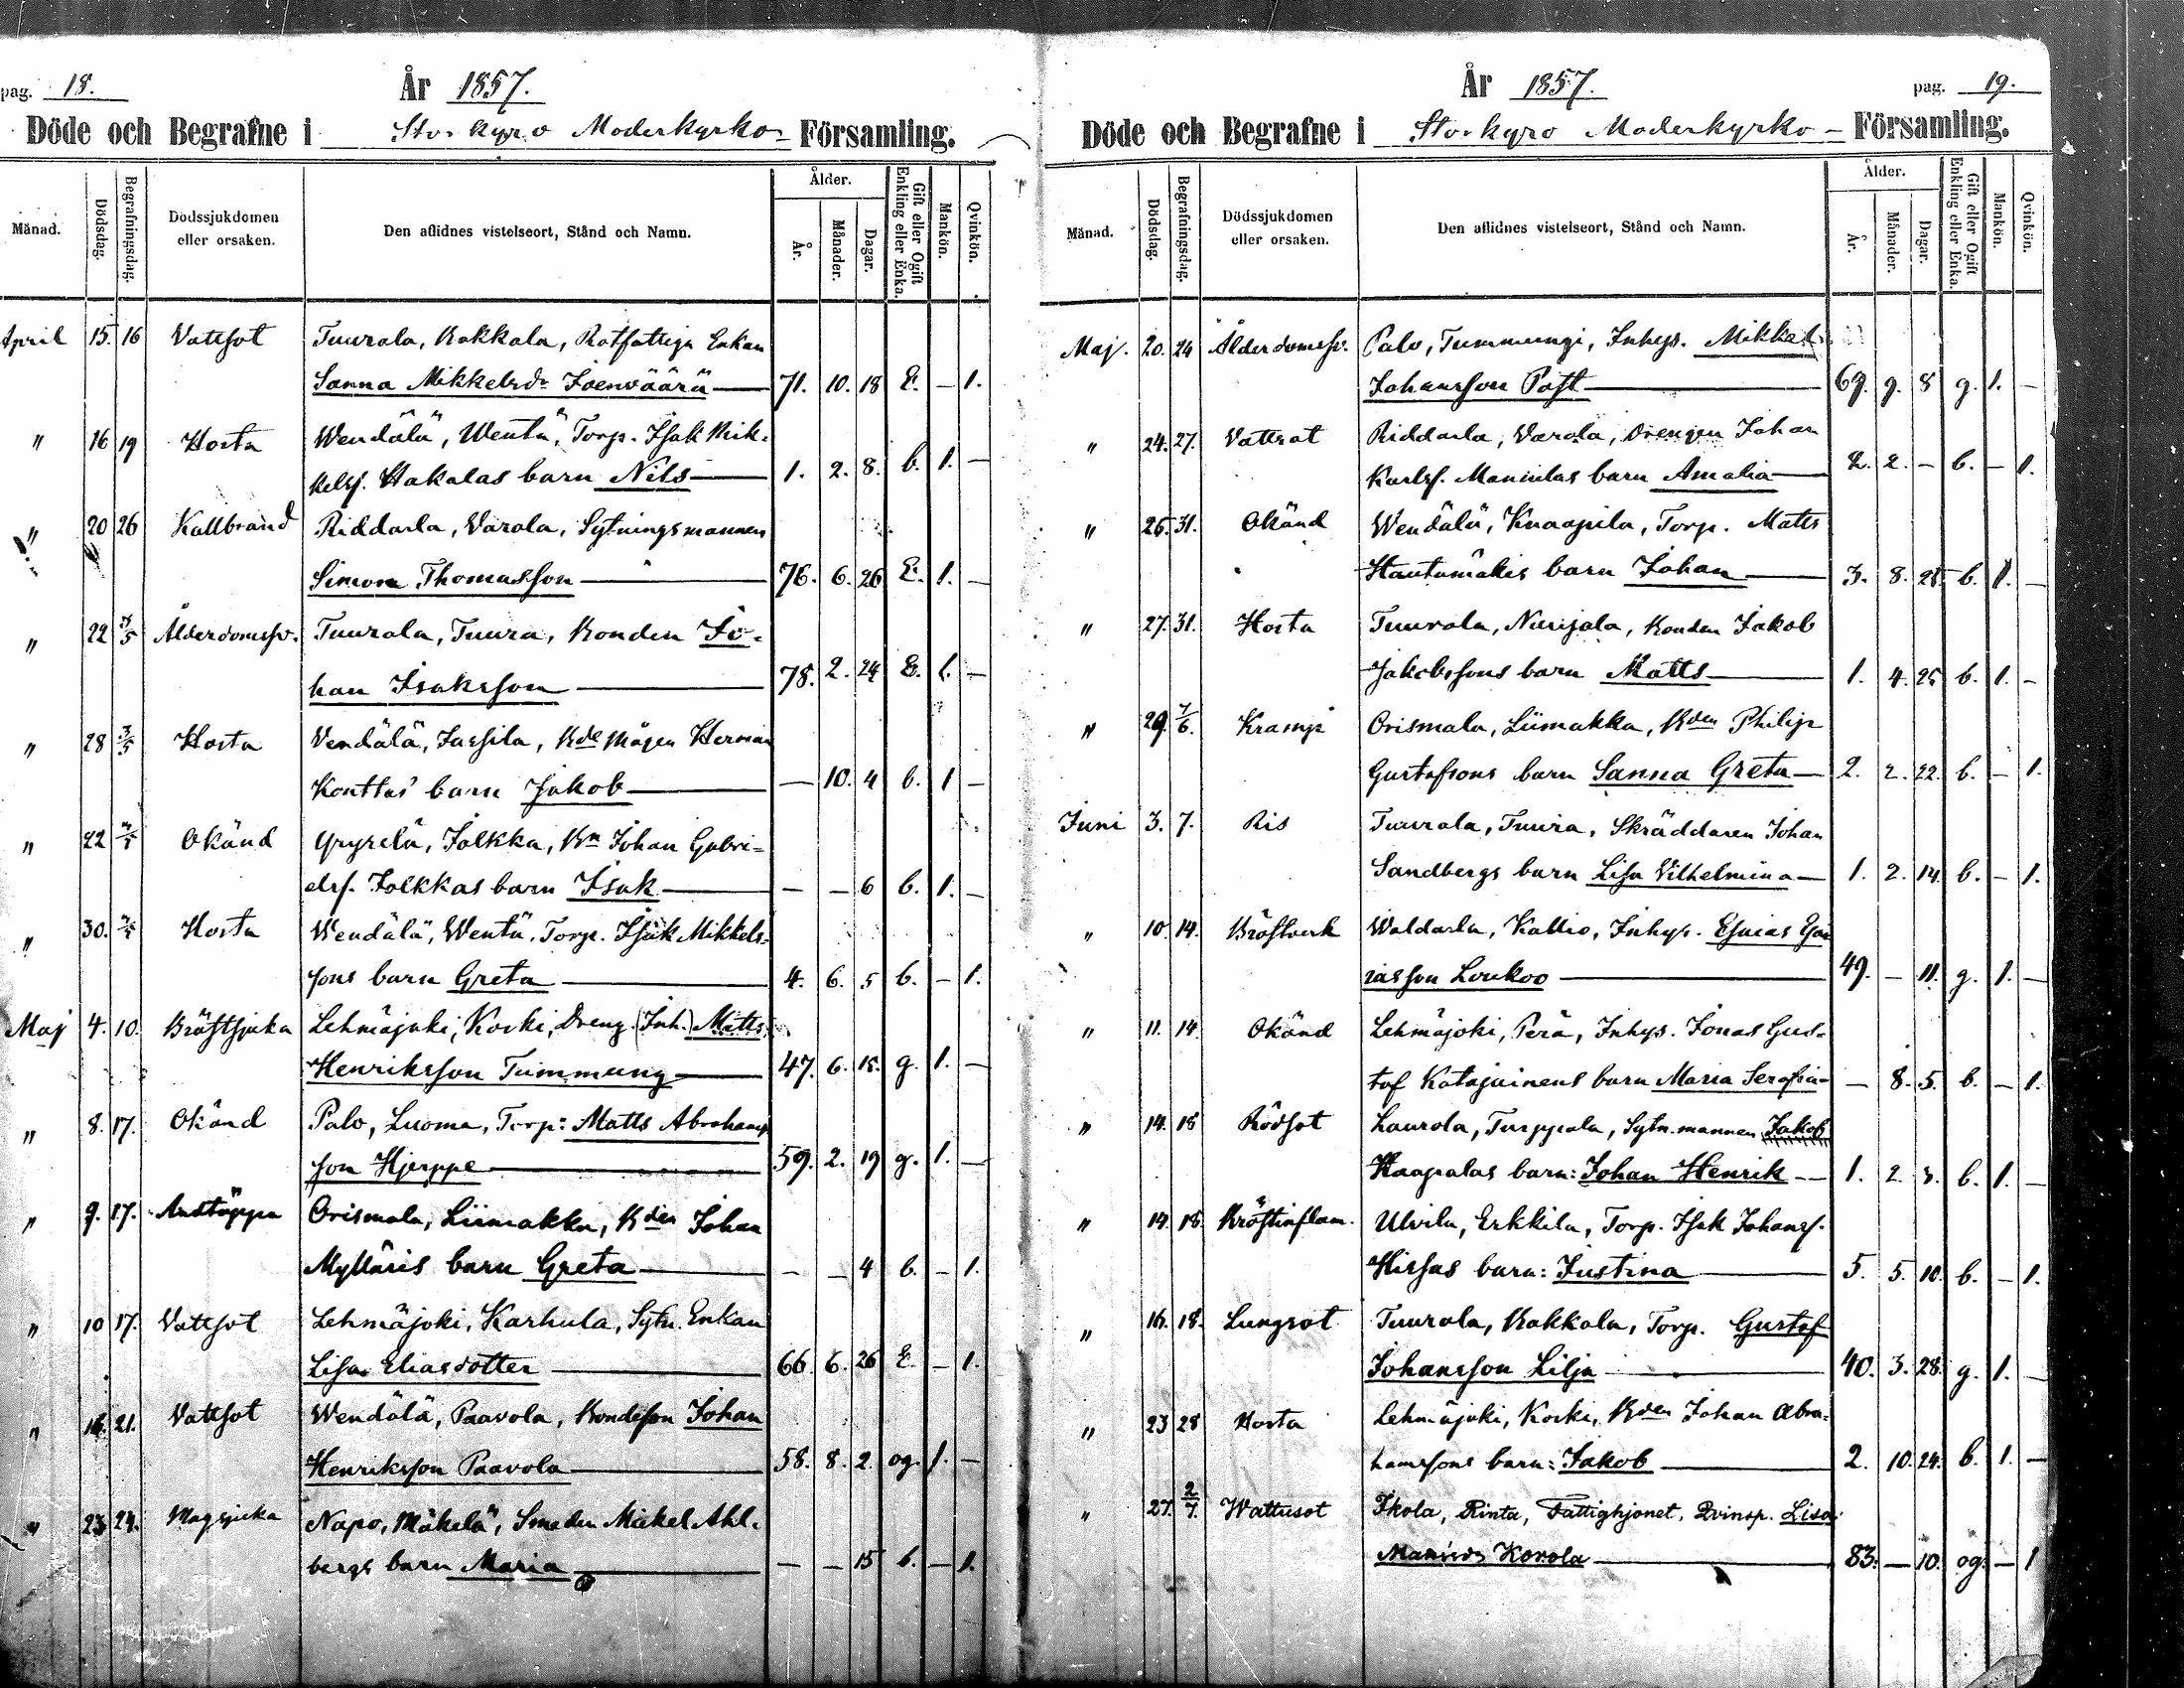 pag. 18.
År 1857.
Döde och Begrafne i Storkyro Moderkyrko- Församling.
Månad. Dödsdag. Begrafningsdag. Dödssjukdomen eller orsaken. Den aflidnes vistelseort, Stånd och Namn. Ålder. År. Månader. Dagar. Gift eller Ogift Enkling eller Enka. Mankön. Qvinkön.
April 15. 16 Vattsot Tuurala, Kakkala, Rotfattiga Enkan
Sanna Mikkelsdr Joenväärä 71. 10. 18 E. — 1.
" 16 19 Hosta Wendälä, Wentä, Torp. Isak Mik-
kelss. Hakalas barn Nils 1. 2. 8. b. 1. —
" 20 26 Kallbrand Riddarla, Varola, Sytningsmannen
Simon Thomasson 76. 6. 26 E. 1. —
" 22 3/5 Ålderdomssv. Tuurala, Tuura, Bonden Jo-
han Isaksson 78. 2. 24 E. 1. —
" 28 3/5 Hosta Vendälä, Jussila, Bde mågen Herman
Konttas barn Jakob — 10. 4 b. 1 —
" 22 3/5 Okänd Yryselä, Jolkka, Bn Johan Gabri-
elss. Jolkkas barn Isak — — 6 b. 1. —
" 30. 3/5 Hosta Wendälä, Wentä, Torp. Isak Mikkels-
sons barn Greta 4. 6. 5 b. — 1.
Maj 4. 10. Bröstsjuka Lehmäjoki, Koski, Dreng. (Inh.) Matts
Henriksson Tummung 47. 6. 15. g. 1. —
" 8. 17. Okänd Palo, Luoma, Torp: Matts Abrahams
son Hjerppe 59. 2. 19 g. 1. —
" 9. 17. Andtäppa Orismala, Liimakka, Bden Johan
Mylläris barn Greta — — 4 b. — 1.
" 10 17. Vattsot Lehmäjoki, Karhula, Sytn. Enkan
Lisa Eliasdotter 66. 6. 26 E. — 1.
" 16. 21. Vattsot Wendälä, Paavola, Bondeson Johan
Henriksson Paavola 58. 8. 2. og. 1. —
" 23 24. Magsjuka Napo, Mäkelä, Smeden Mickel Ahl-
bergs barn Maria — — 15 b. — 1.
År 1857.
pag. 19.
Döde och Begrafne i Storkyro Moderkyrko- Församling.
Månad. Dödsdag. Begrafningsdag. Dödssjukdomen eller orsaken. Den aflidnes vistelseort, Stånd och Namn. Ålder. År. Månader. Dagar. Gift eller Ogift Enkling eller Enka. Mankön. Qvinkön.
Maj. 20. 24 Ålderdomssv. Palo, Tummungi, Inhys. Mikkel
Johansson Post 69. 9. 8 g. 1. —
" 24. 27. Vattsot Riddarla, Varola, Drengen Johan
Karlss. Mannilas barn Amalia 2. 2. — b. — 1.
" 25. 31. Okänd Wendälä, Knaapila, Torp. Matts
Hautamäkis barn Johan 3. 8. 28. b. 1. —
" 27. 31. Hosta Tuurala, Nurijala, Bonden Jakob
Jakobssons barn Matts 1. 4. 25 b. 1. —
" 29. 7/6. Kramp Orismala, Liimakka, Bden Philip
Gustafsons barn Sanna Greta 2. 2. 22. b. — 1.
Juni 3. 7. Ris Tuurala, Tuura, Skräddaren Johan
Sandbergs barn Lisa Vilhelmina 1. 2. 14. b. — 1.
" 10. 14. Bröstverk Waldarla, Kallio, Inhys. Esaias Esa
iasson Loukoo 49. — 11. g. 1. —
" 11. 14. Okänd Lehmäjoki, Perä, Inhys. Jonas Gus-
taf Katajainens barn Maria Serafia — 8. 5. b. — 1.
" 14. 18 Rödsot Laurola, Turppala, Sytn.mannen Jakob
Haapalas barn: Johan Henrik 1. 2. 3. b. 1. —
" 14. 18 Bröstinflam. Ulvila, Erkkila, Torp. Isak Johanss.
Hissas barn: Justina 5. 5. 10. b. — 1.
" 16. 18. Lungsot Tuurala, Kakkala, Torp. Gustaf
Johansson Lilja 40. 3. 28. g. 1. —
" 23 28 Hosta Lehmäjoki, Koski, Bden Johan Abra-
hamssons barn: Jakob 2. 10. 24. b. 1. —
" 27. 2/7. Wattusot Ikola, Rinta, Fattighjonet, Qvinsp. Lisa
Korola 83. — 10. og. — 1